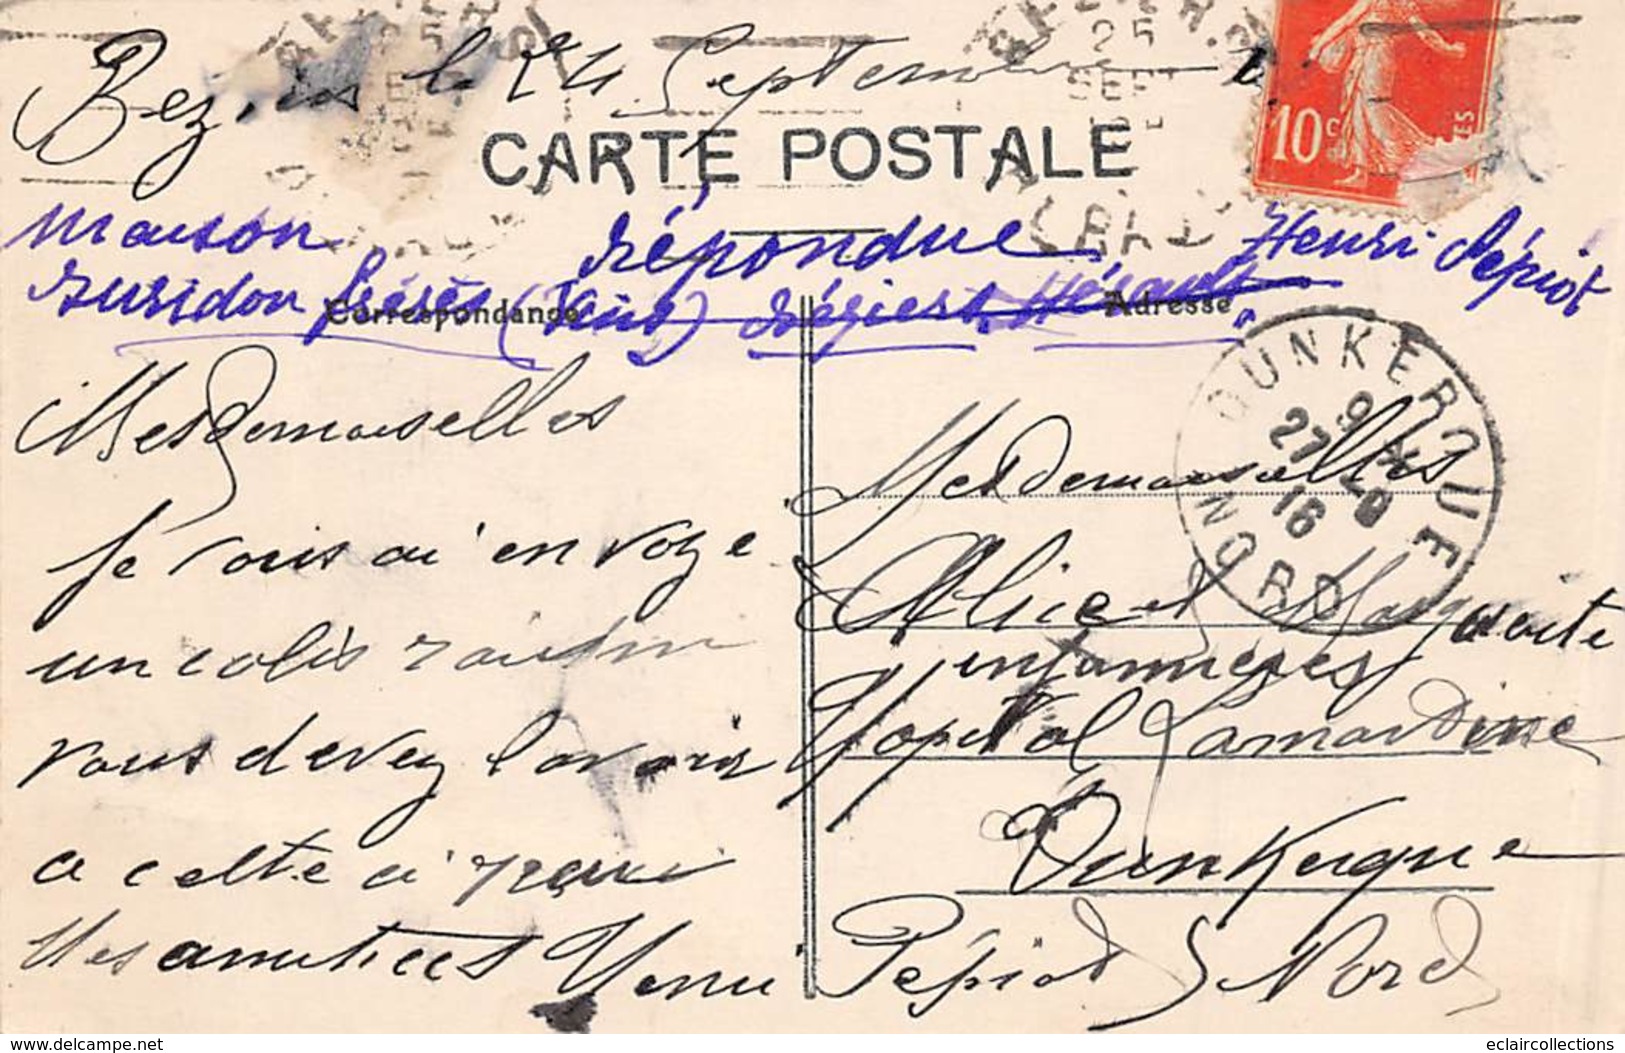 Beziers le 24 Septembre
CARTE POSTALE
10c
maison répondue Henri Pépiot
frères (Vins) Béziers "Hérault"
Correspondance Adresse
DUNKERQUE
27 - 9
16
NORD
MesDemoiselles
Je vous ai envoyé
un colis raisin
vous devez l'avoir
a cette
Mes amitiées Henri
MesDemoiselles
Alice et Marguerite
infirmieres
Hopital Lamartine
Dunkerque
Pépiot Nord
www.delcampe.net
eclaircollections